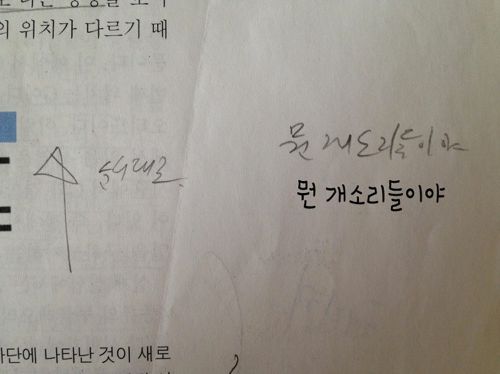 의 위치가 다르기 때
순서대로
뭔 개소리들이야
뭔 개소리들이야
단에 나타난 것이 새로